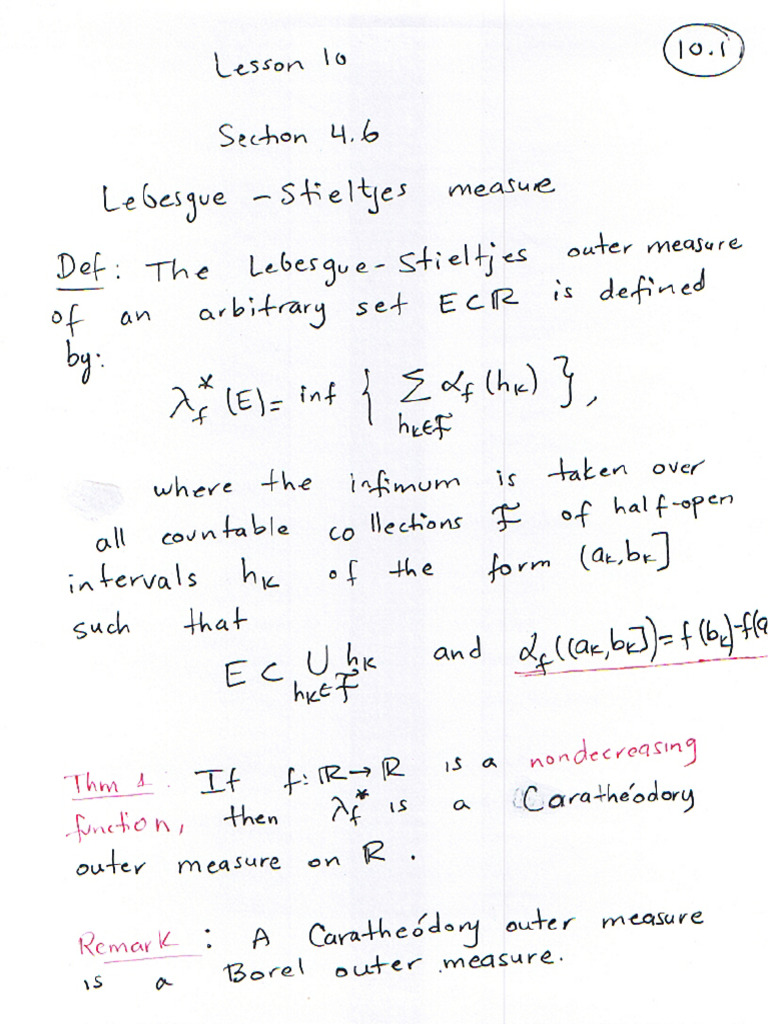 10.1
Lesson 10
Section 4.6
Lebesgue - Stieltjes measure
Def: The Lebesgue-Stieltjes outer measure
of an arbitrary set E⊂ℝ is defined
by:
λ_f^*(E) = inf { ∑_{h_k∈ℱ} α_f(h_k) },
where the infimum is taken over
all countable collections ℱ of half-open
intervals h_k of the form (a_k,b_k]
such that
E ⊂ ∪_{h_k∈ℱ} h_k and α_f((a_k,b_k])=f(b_k)-f(a
Thm 1: If f:ℝ→ℝ is a nondecreasing
function, then λ_f^* is a Carathéodory
outer measure on ℝ.
Remark: A Carathéodory outer measure
is a Borel outer measure.